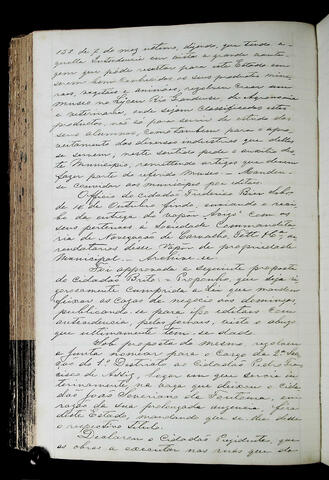 151 de 2 do mez ultimo, dizendo, que tendo a-
quella Intendencia em vista a grande vanta-
gem que póde resultar para este Estado em
serem bem conhecidos os seus productos mine-
raes, vegetaes e animaes, resolveu crear um
museo no Lyceu Rio Grandense de Agronomia
e Veterinaria, onde sejam classificados estes
productos, não só para servir de estudo dos
seus alumnos, como tambem para o apro-
veitamento das diversas industrias que delles
se servem, neste sentido pede o auxilio des-
te Municipio, remettendo artigos que devem
fazer parte do referido museo. — Mandou-
se convidar aos municipes por editaes.
Officio do cidadão Frederico
de 16 de Outubro findo, enviando o reci-
bo da entrega do vapor com os
seus pertences a Sociedade Commandita-
ria de Navegação de Carvalho ar-
rendatarios desse vapor de propriedade
Municipal. — Archive-se.
Foi approvada a seguinte proposta
do cidadão Brito. — Proponho, que seja ri-
gorosamente cumprida a lei que manda
feixar as casas de negocio aos domingos
publicando-se para isso editaes com
antecedencia, pelas folhas, visto o abuso
que ultimamente tem-se dado.
Sob proposta do mesmo, resolveu
a Junta nomear para o cargo de 2º
do 1º Districto ao cidadão Fran-
cisco de lugar em que serviu in-
terinamente, na vaga que deixou o cida-
dão João Severiano da Fontoura, em
razão da sua prolongada ausencia fora
deste Estado, mandando que se lhe désse
o respectivo titulo.
Declarou o cidadão Presidente, que
as obras a executar nas ruas que de-